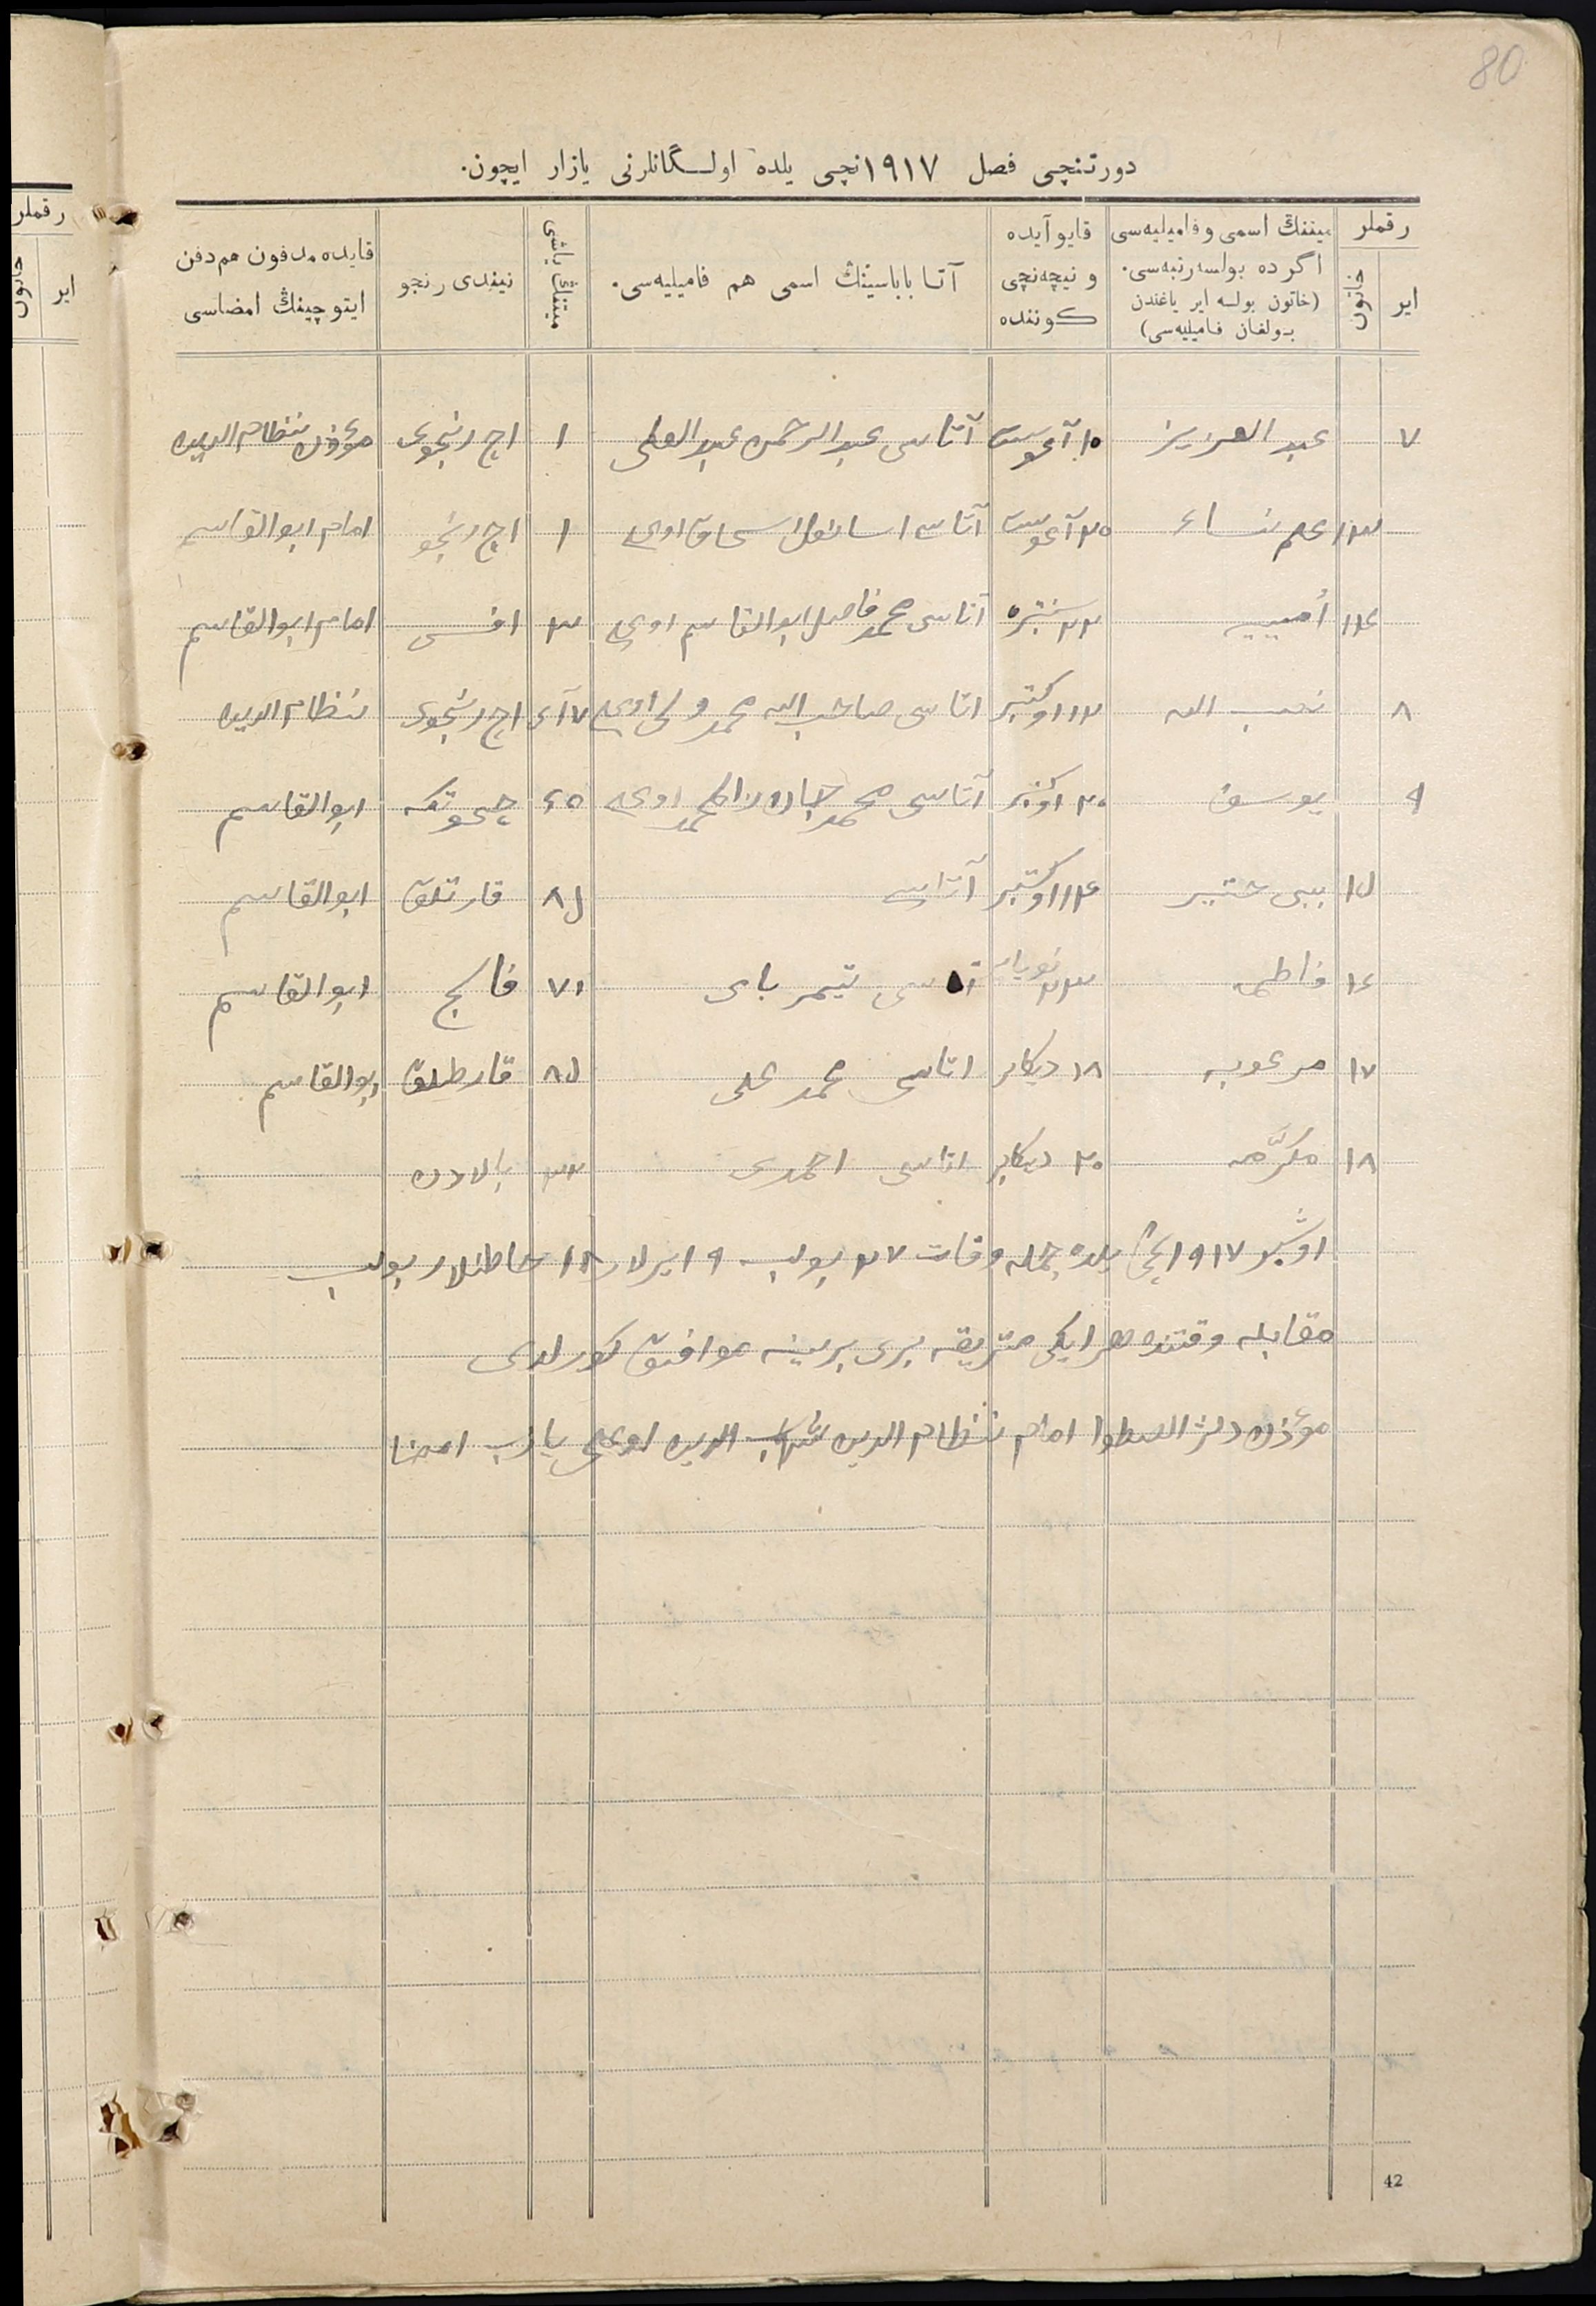 80
دورتنچی فصل ۱۹۱۷نچی يلده اولـگانلرنی يازار ايچون.
رقملر
اير
خاتون
ميتنڭ اسمی و فاميليه‌سی اگر ده بولسه رتبه‌سی. (خاتون بولسه اير ياغندن بولغان فاميليه‌سی)
قايو آيده و نيچه‌نچی كوننده
آتا باباسينڭ اسمی هم فاميليه‌سی.
ميتنڭ ياشی
نيندی رنجو
قايده مدفون هم دفن ايتوچينڭ امضاسی
۷ عبد العزيز ۱۰ آغوست آتاسی عبد الرحمن عبد العلی ۱ اچ رنجوی مؤذن نظام الدين
۱۳ علم نساء ۲۵ آغوست آتاسی اسحاق اوغلی ۱ اچ رنجو امام ابو القاسم
۱۴ ۲۲ سنتبره آتاسی محمد فاضل ابو القاسم اوغلی ۳ امام ابو القاسم
۸ ۱۲ اوكتبر اتاسی صاحب الله محمد ولی اوغلی ۷ آی اچ رنجوی نظام الدين
۹ يوسف ۲۰ اوكتبر آتاسی محمد جان اوغلی ۶۵ ابو القاسم
۱۵ بيبی اوكتبر آتاسی ۸۵ قارتلق ابو القاسم
۱۶ فاطمه ۲۳ نويابر آتاسی تيمر بای ۷۱ فالج ابو القاسم
۱۷ مرغوبه ۱۸ ديكابر اتاسی محمد علی ۸۵ قارطلق ابو القاسم
۱۸ مكرّمه ۲۰ ديكابر اتاسی احمدی ۳۲ بالادن
اوشبو ۱۹۱۷ نچی يلده جمله وفات ۲۷ بولب ۹ ايرلار ۱۸ خاطنلار بولب
مقابله وقتنده هر ايكی متريقه بری برينه موافق كورلدی
مؤذن امام نظام الدين شهاب الدين اوغلی يازب امضا
42
رقملر
اير
خاتون